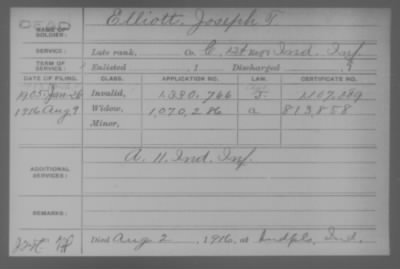 DEAD
NAME OF SOLDIER: Elliott, Joseph T.
SERVICE: Late rank, Co. C, 12t Reg't Ind. Inf.
TERM OF SERVICE: Enlisted , 1 Discharged , 1
DATE OF FILING. CLASS. APPLICATION NO. LAW. CERTIFICATE NO.
1905 Jan 26 Invalid, 1,330,766
1916 Aug 9 Widow, 1,070,286 a 813,858
Minor,
ADDITIONAL SERVICES: A. 11. Ind. Inf.
REMARKS:
Died Aug 2, 1916, at Indpls, Ind.